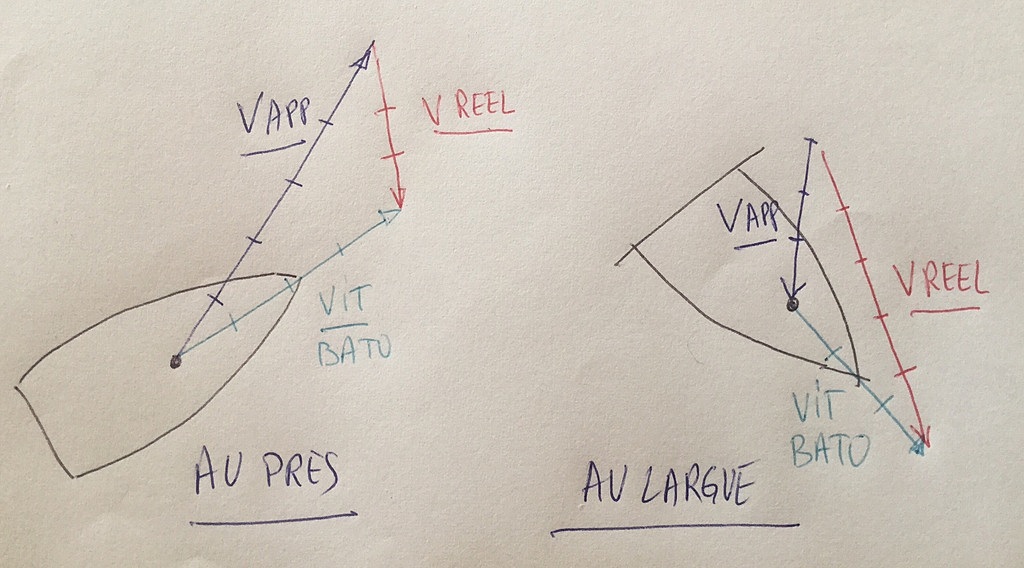 V APP
V REEL
VIT
BATO
AU PRES
V APP
V REEL
VIT
BATO
AU LARGUE